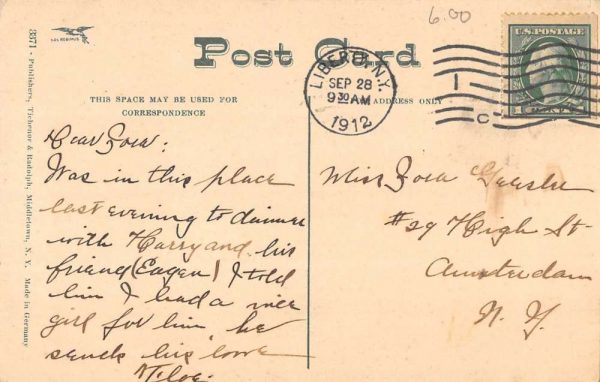 6.00
U.S. POSTAGE
Post Card
LIBERTY, N.Y.
SEP 28
9 30 AM
1912
1
C
THIS SPACE MAY BE USED FOR
CORRESPONDENCE
ADDRESS ONLY
3371 - Publishers, Tichenor & Rudolph, Middletown, N. Y. Made in Germany
Dear Zora:
Was in this place
last evening to dinner
with Harry and his
friend (Eagen) I told
him I had a nice
girl for him, he
sends his love
Miss Zora
#29 High St
Amsterdam
N. Y.